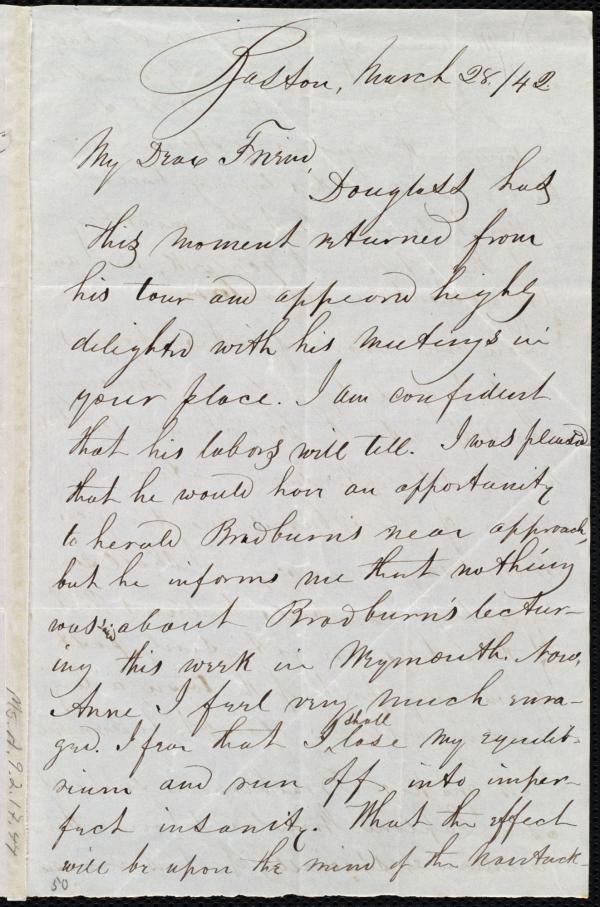 Boston, March 28./42.
My Dear Friend,
Douglass has
this moment returned from
his tour and appears highly
delighted with his meetings in
your place. I am confident
that his labors will tell. I was pleased
that he would have an opportunity
to herald Bradburn's near approach,
but he informs me that nothing
was said about Bradburn's lectur-
ing this week in Weymouth. Now,
Anne I feel very much enra-
ged. I fear that I shall lose my equilib-
rium and run off into imper-
fect insanity. What the effect
will be upon the mind of the Nantuck-
50
Ms. A. 9. 2. 17. 44